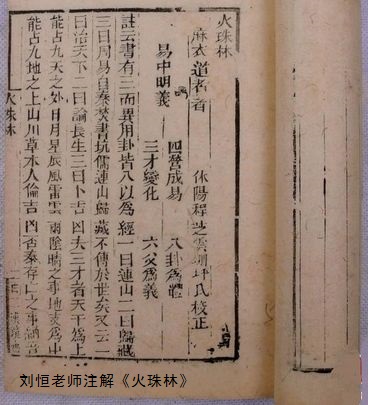 火珠林
麻衣道者著 休陽程芝雲潤坪氏校正
四營成易 八卦為體
易中明義
三才變化 六爻為義
註云書有三而異用卦皆八以為經一曰連山二曰歸藏
三曰周易自秦焚書坑儒連山歸藏不傳於世矣又云一
曰治天下二曰論長生三曰卜吉凶夫三才者天為上
能占九天之外日月星辰風雷雲雨陰晴之事地支為中
能占九地之上山川草木人倫吉凶否泰存亡之事納音
火珠林
刘恒老师注解《火珠林》